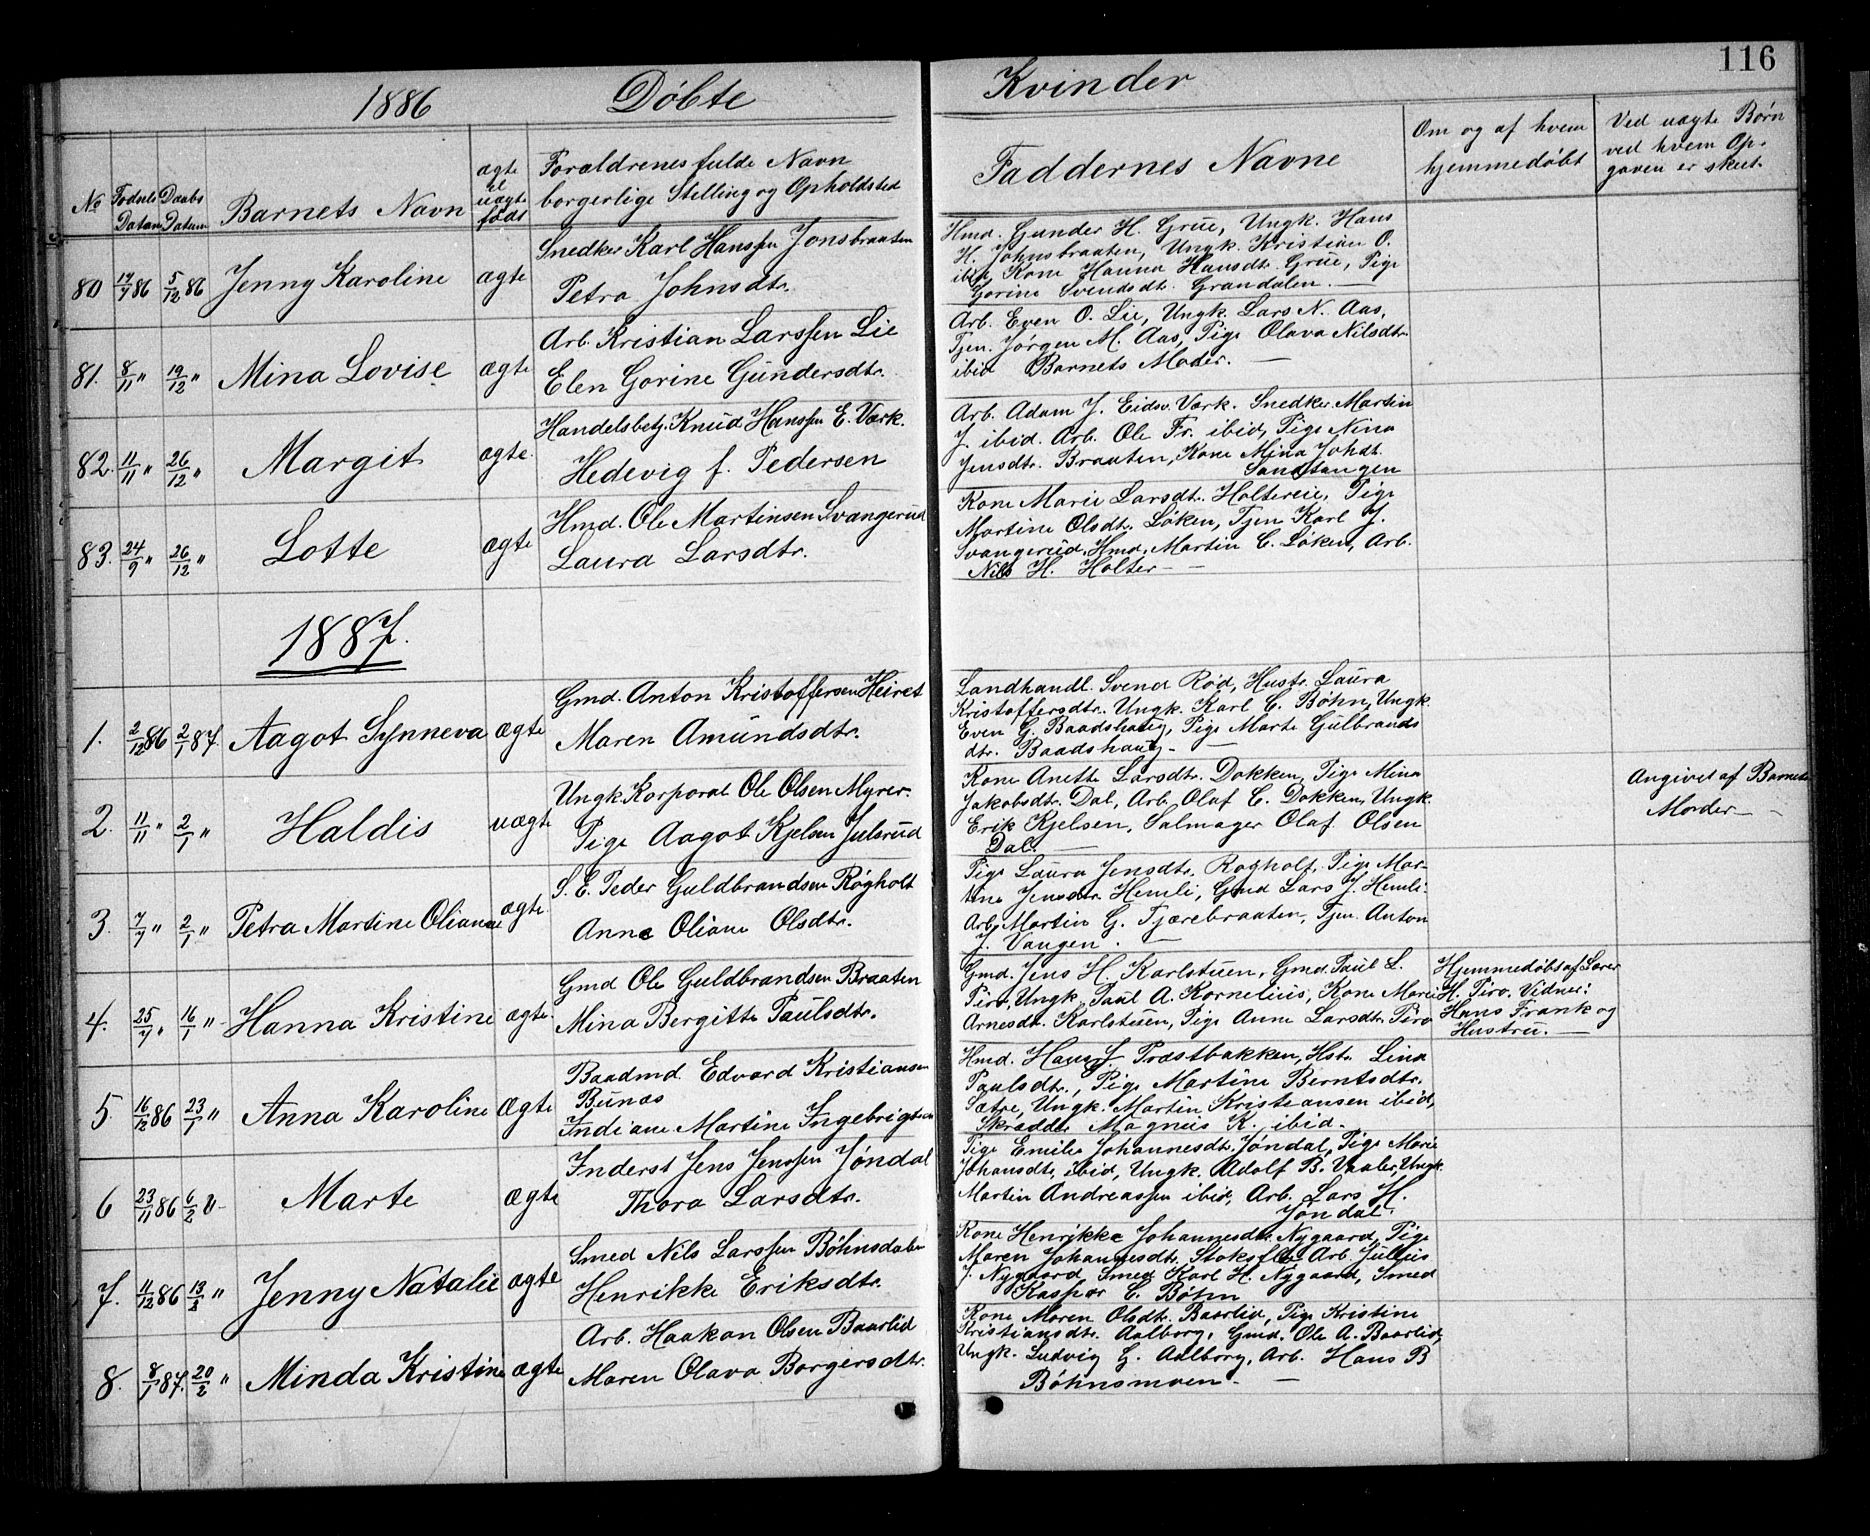 116
1886 Døbte Kvinder
No
Fødsels Datum
Daabs Datum
Barnets Navn
ægte el uægte født
Forældrenes fulde Navn
borgerlige Stilling og Opholdsted
Faddernes Navne
Om og af hvem
hjemmedøbt
Ved uægte Børn
ved hvem Op-
gaven er skeet.
80 14/7 86 5/12 86 Jenny Karoline ægte
Snedker Karl Hanssen Jonsbraaten
Petra Johnsdtr.
Hmd. Gunder H. Grue, Ungk. Hans
H. Johnsbraaten, Ungk. Kristian O.
ibid, Kone Hanna Hansdtr. Grue, Pige
Gorine Svendsdt. Grandalen.
81. 8/11 " 19/12 " Mina Lovise ægte
Arb. Kristian Larssen Lie
Elen Gorine Gundersdtr.
Arb. Even O. Lie, Ungk. Lars N. Aas,
Tjen. Jørgen M. Aas, Pige Olava Nilsdtr.
ibid Barnets Moder.
82. 11/11 " 26/12 " Margit ægte.
Handelsbetj. Knud Hanssen E. Værk.
Hedevig f. Pedersen
Arb. Adam J. Eidsv. Værk. Snedker Martin
J. ibid. Arb. Ole Fr. ibid, Pige Nina
Jensdtr. Braaten, Kone Mina Johdt.
Sandtangen
83. 24/9 " 26/12 " Lotte ægte
Hmd. Ole Martinsen Svangerud
Laura Larsdtr.
Kone Marie Larsdtr. Holtereie, Pige
Martine Olsdtr. Løken, Tjen Karl J.
Svangerud, Hmd. Martin C. Løken, Arb.
Nils H. Holter
1887.
1. 2/12 86 2/1 87. Aagot Synneva ægte
Gmd. Anton Kristoffersen Heiret
Maren Amundsdtr.
Landhandl. Svend Rød, Hustr. Laura
Kristoffersdtr. Ungk. Karl C. Bøhn, Ungk.
Even G. Baadshaug, Pige Marte Gulbrands
dtr. Baadshaug
2. 11/11 " 2/1 " Haldis uægte
Ungk. Korporal Ole Olsen Myrer.
Pige Aagot Kjelsen Julsrud
Kone Anette Larsdtr. Dokken, Pige Mina
Jakobsdtr. Dal, Arb. Olaf C. Dokken, Ungk.
Erik Kjelsen, Salmager Olaf Olsen
Dal.
Angivet af Barnets
Moder
3. 7/7 " 2/1 " Petra Martine Oliane ægte.
S. E. Peder Guldbrandsen Røgholt
Anne Oliane Olsdtr.
Pige Laura Jensdtr. Rogholt, Pige Mar-
tine Jensdtr. Hemli, Gmd Lars J. Hemli.
Arb. Martin G. Tjærebraaten, Tjen. Anton
J. Vangen.
4. 25/7 " 16/1 " Hanna Kristine ægte.
Gmd Ole Guldbrandsen Braaten
Mina Bergitte Paulsdtr.
Gmd. Jens H. Karlstuen, Gmd. Paul L.
Piro, Ungk. Paul A. Kornelius, Kone Marie
Arnesdt. Karlstuen, Pige Anne Larsdtr. Piro
Hjemmedøbt af Lærer
H. Piro. Vidner:
Hans Frank og
Hustru.
5. 16/12 86 23/1 " Anna Karoline ægte
Baadmd. Edvard Kristiansen
Bunæs
Indiane Martine Ingebrigtsdtr
Hmd. Hans J. Præstbakken, Hstr. Lina
Paulsdtr., Pige Martine Berntsdtr.
Sætre, Ungk. Martin Kristiansen ibid,
Skrædder Magnus K. ibid.
6 23/11 86 6/2 " Marte ægte
Inderst Jens Jenssen Jøndal
Thora Larsdtr.
Pige Emilie Johannesdtr. Jøndal, Pige Marie
Johansdtr, ibid, Ungk. Adolf B. Vaaler, Ungk.
Martin Andreassen ibid, Arb. Lars H.
Jøndal.
7. 11/12 86 13/2 " Jenny Natalie ægte
Smed Nils Larssen Bøhnsdalen
Henrikke Eriksdtr.
Kone Henrikke Johannesdtr. Nygaard, Pige
Maren Johannesdtr. Stoksfl. Arb. Julius
J. Nygaard, Smed Karl H. Nygaard, Smed
Kasper C. Bøhn
8. 8/1 87. 20/2 " Minda Kristine ægte
Arb. Haakon Olsen Baarlid
Maren Olava Borgersdtr.
Kone Maren Olsdtr. Baarlid, Pige Kristine
Kristiansdtr. Aalborg, Gmd. Ole A. Baarlid,
Ungk. Ludvig G. Aalborg, Arb. Hans B
Bøhnsmoen